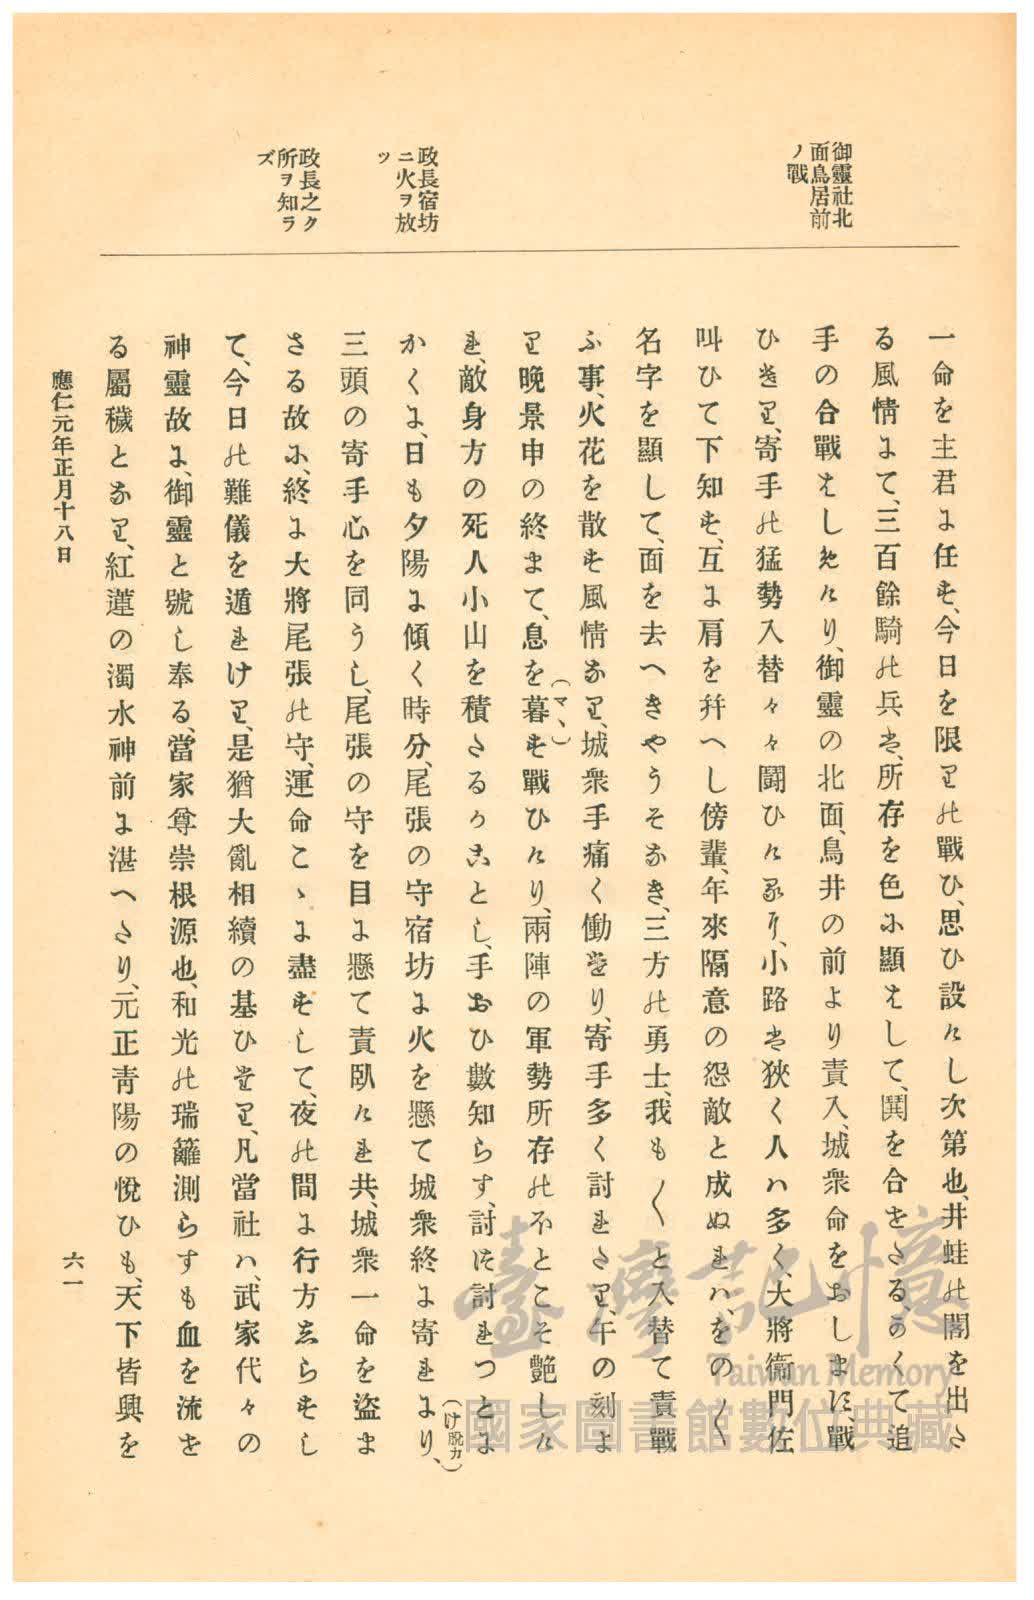 御靈社北
面鳥居前
ノ戰
政長宿坊
ニ火ヲ放
ツ
政長之ク
所ヲ知ラ
ズ
一命を主君に任す、今日を限りの戰ひ、思ひ設けし次第也、井蛙の閣を出さ
る風情にて、三百餘騎の兵は、所存を色に顯はして、鬨を合をさる、かくて追
手の合戰はしたけり、御靈の北面、鳥井の前より責入、城衆命をおしまに、戰
ひさり、寄手の猛勢入替々々鬪ひける間、小路は狹く人ハ多く、大將衞門佐
叫ひて下知す、互に肩を幷へし傍輩、年來隔意の怨敵と成ぬれハ、をの〱
名字を顯して、面を去へきやうそなき、三方の勇士、我も〱と入替て責戰
ふ事、火花を散す風情なり、城衆手痛く働をり、寄手多く討れたり、午の刻よ
り晩景申の終まて、息を暮す戰ひけり、兩陣の軍勢所存のほとこそ艶しけ
(マヽ)
れ、敵身方の死人小山を積たるかことし、手おひ數知らす、討ほ討れつとよ
かくよ、日も夕陽に傾く時分、尾張の守宿坊に火を懸て城衆終に寄れより、
(け脱カ)
三頭の寄手心を同うし、尾張の守を目に懸て責臥けれ共、城衆一命を盜ま
さる故に、終に大將尾張の守、運命こゝに盡すして、夜の間に行方しらすし
て、今日の難儀を遁れけり、是猶大亂相續の基ひなり、凡當社ハ、武家代々の
神靈故に、御靈と號し奉る、當家尊崇根源也、和光の瑞籬測らすも血を流を
る屬穢となり、紅蓮の濁水神前に湛へたり、元正靑陽の悅ひも、天下皆興を
應仁元年正月十八日
六一
臺灣記憶
Taiwan Memory
國家圖書館數位典藏